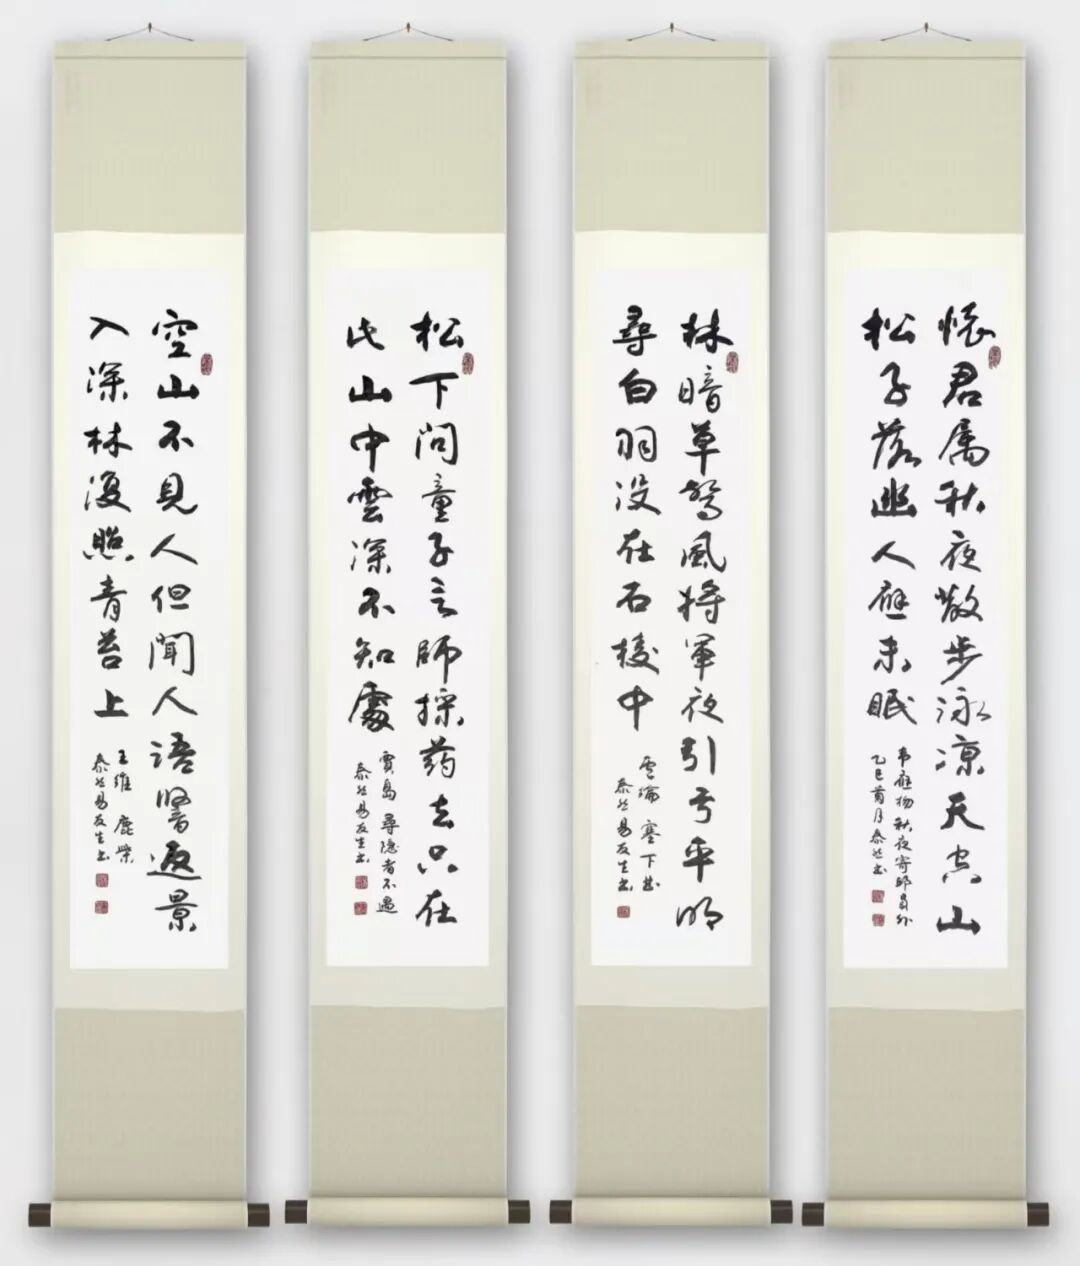 空山不見人但聞人語響返景
入深林復照青苔上
王維 鹿柴
泰然易友生书
松下問童子言師採药去只在
此山中雲深不知處
賈島 尋隐者不遇
泰然易友生书
林暗草驚風將軍夜引弓平明
尋白羽没在石棱中
盧綸 塞下曲
泰然易友生书
懷君属秋夜散步詠凉天空山
松子落幽人應未眠
韦應物秋夜寄邱員外
乙巳 月泰然书